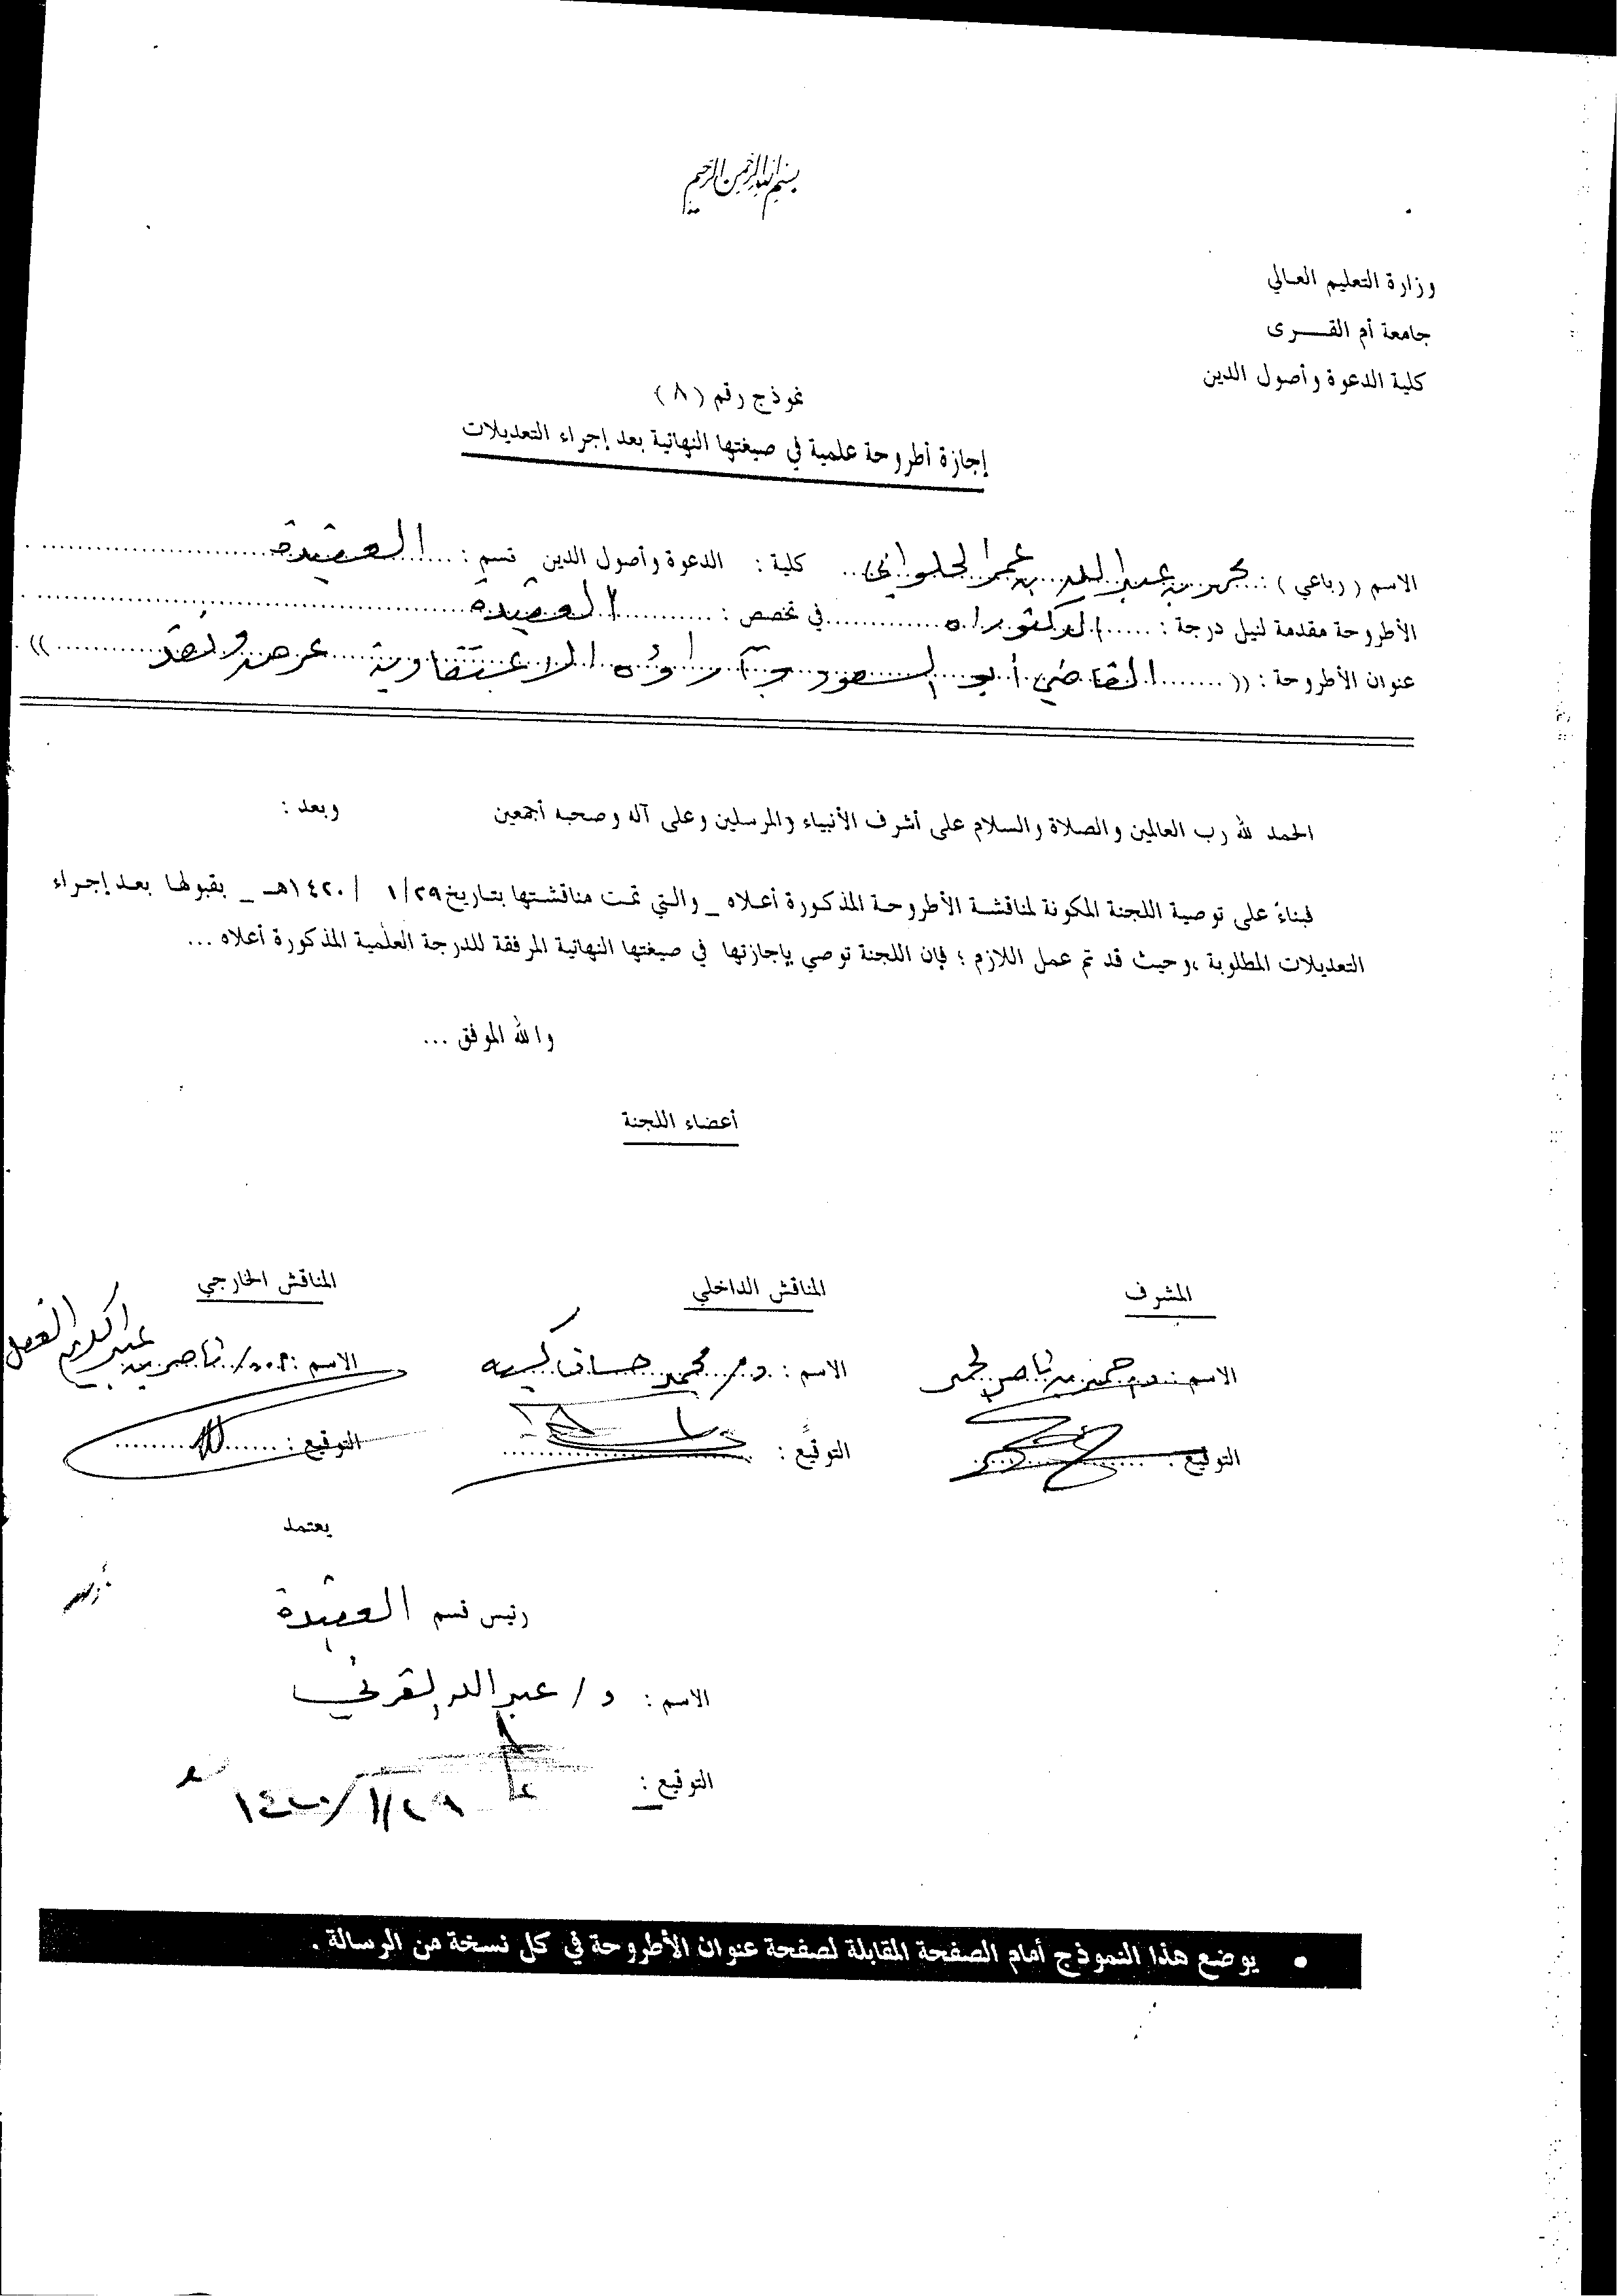 بسم الله الرحمن الرحيم
وزارة التعليم العالي
جامعة أم القــــرى
كلية الدعوة وأصول الدين
نموذج رقم (٨)
إجازة أطروحة علمية في صيغتها النهائية بعد إجراء التعديلات
الاسم (رباعي) : بن عبد الله بن عمر الحلواني كلية : الدعوة وأصول الدين قسم : العقيدة
الأطروحة مقدمة لنيل درجة : الدكتوراه في تخصص : العقيدة
عنوان الأطروحة : (( القاضي أبو السعود وآراؤه الاعتقادية عرض ونقد ))
الحمد لله رب العالمين والصلاة والسلام على أشرف الأنبياء والمرسلين وعلى آله وصحبه أجمعين وبعد :
فبناءً على توصية اللجنة المكونة لمناقشة الأطروحة المذكورة أعلاه _ والتي تمت مناقشتها بتاريخ ١/٢٩ / ١٤٢٠هـ _ بقبولها بعد إجراء
التعديلات المطلوبة ،وحيث قد تم عمل اللازم ؛ فإن اللجنة توصي بإجازتها في صيغتها النهائية المرفقة للدرجة العلمية المذكورة أعلاه ...
والله الموفق ...
أعضاء اللجنة
المشرف المناقش الداخلي المناقش الخارجي
الاسم : بن ناصر الاسم : د/ محمد حسان كسبه الاسم : أ.د/ ناصر بن عبد الكريم العقل
التوقيع : التوقيع : التوقيع :
يعتمد
رئيس قسم العقيدة
الاسم : د / عبد الله القرني
التوقيع : ١٤٢٠/١/٢٩
• يوضع هذا النموذج أمام الصفحة المقابلة لصفحة عنوان الأطروحة في كل نسخة من الرسالة .